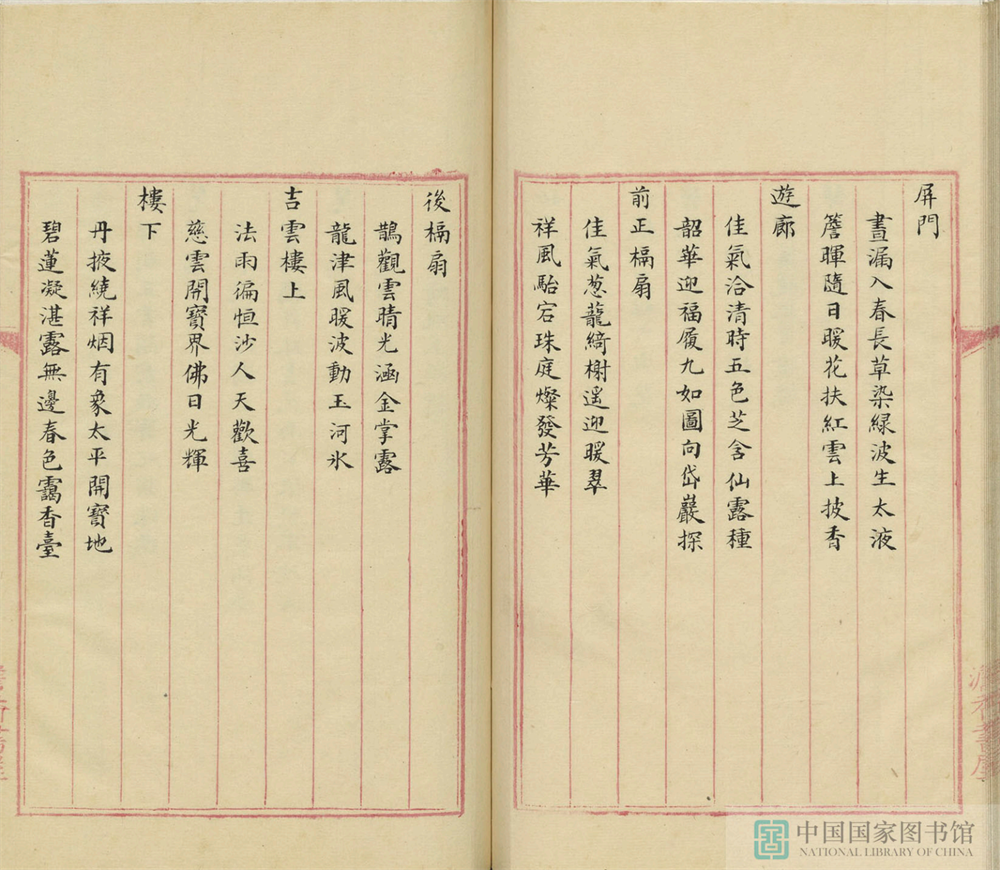 屏門
晝漏入春長草染緑波生太液
簷暉隨日暖花扶紅雲上披香
遊廊
佳氣洽清時五色芝含仙露種
韶華迎福履九如圖向岱巖探
前正槅扇
佳氣葱蘢綺榭遥迎暖翠
祥風駘宕珠庭燦發芳華
後槅扇
鵲觀雲晴光涵金掌露
龍津風暖波動玉河氷
吉雲樓上
法雨徧恒沙人天歡喜
慈雲開寳界佛日光輝
樓下
丹掖繞祥烟有象太平開寳地
碧蓮凝湛露無邊春色靄香臺
中国国家图书馆
NATIONAL LIBRARY OF CHINA